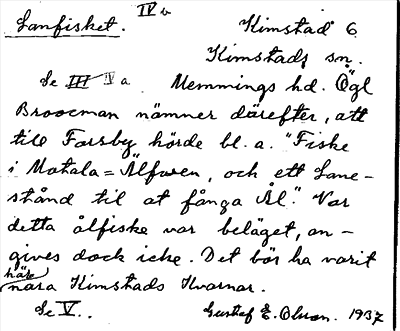 IV b
Lanfisket. Kimstad 6
Kimstads sn.
Se III IV a Memmings hd. Ögl
Broocman nämner därefter, att
till Farsby hörde bl. a. "Fiske
i Motala=Älfwen, och ett Lane-
stånd til at fånga Ål." Var
detta ålfiske var beläget, an-
gives dock icke. Det bör ha varit
här
nära Kimstads Kvarnar.
Se V.. Gustaf E. Olsson. 1937